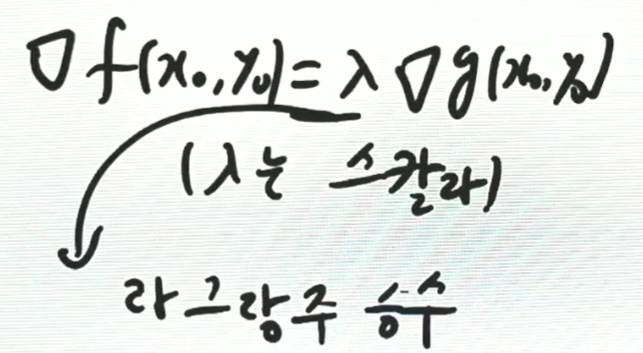 ∇f(x₀,y₀)=λ∇g(x₀,y₀)
(λ는 스칼라)
라그랑주 승수